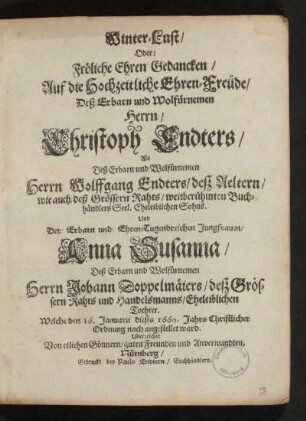 Winter-Lust/
Oder:
Fröliche Ehren Gedancken/
Auf die Hochzeitliche Ehren-Freüde/
Deß Erbarn und Wolfürnemen
Herrn/
Christoph Endters/
Als
Deß Erbarn und Wolfürnemen
Herrn Wolffgang Endters/ deß Aeltern/
wie auch deß Grössern Rahts/ weitberühmten Buch-
händlers Seel. Eheleiblichen Sohns.
Und
Der Erbarn und Ehren-Tugendreichen Jungfrauen/
Anna Susanna/
Deß Erbarn und Wolfürnemen
Herrn Johann Doppelmäiers/ deß Grös-
sern Rahts und Handelsmanns/ Eheleiblichen
Tochter.
Welche den 16. Januarii dieses 1660. Jahrs Christlicher
Ordnung nach angestellet ward.
Uberreichet
Von etlichen Gönnern/ guten Freunden und Anverwandten.
Nürnberg/
Gedruckt bey Paulo Buchhändlern.